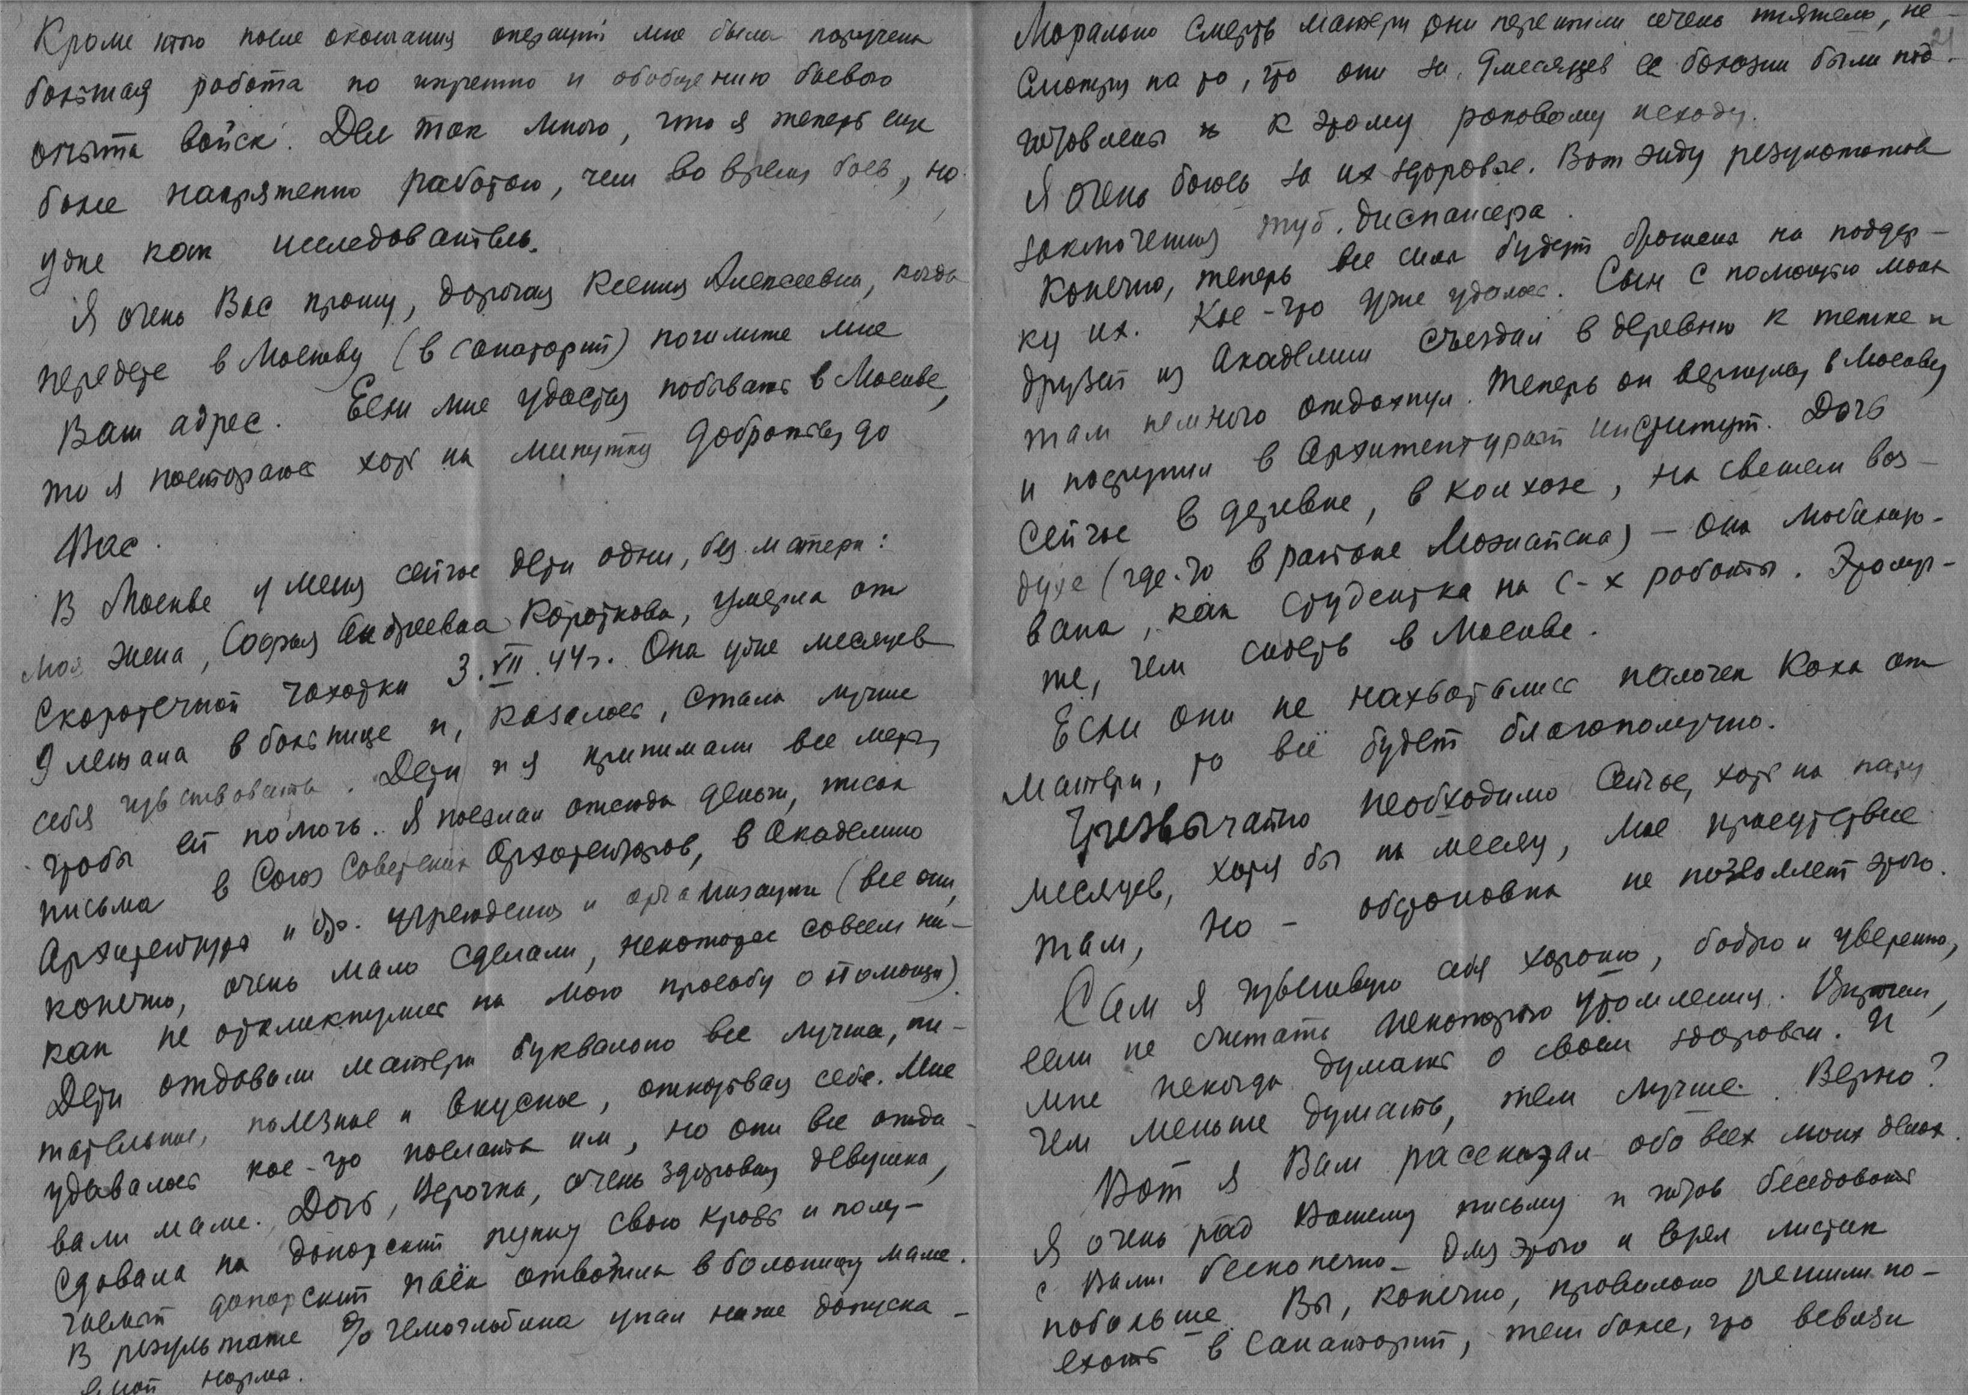 Кроме того после окончания операций мне была поручена
большая работа по изучению и обобщению боевого
опыта войск. Дел так много, что я теперь еще
более напряженно работаю, чем во время боев, но
уже как исследователь.
Я очень Вас прошу, дорогая Ксения Алексеевна, когда
переедете в Москву (в санаторий) пошлите мне
Ваш адрес. Если мне удастся побывать в Москве,
то я постараюсь хоть на минутку добраться до
Вас.
В Москве у меня сейчас дети одни, без матери:
моя жена, Софья Андреевна Короткова, умерла от
скоротечной чахотки 3.VII.44г. Она уже месяцев
9 лежала в больнице и, казалось, стала лучше
себя чувствовать. Дети и я принимали все меры,
чтобы ей помочь. Я посылал отсюда деньги, писал
письма в Союз Советских Архитекторов, в Академию
Архитектуры и др. учреждения и организации (все они,
конечно, очень мало сделали, некоторые совсем ни-
как не откликнулись на мою просьбу о помощи).
Дети отдавали матери буквально все лучшее, пи-
тательное, полезное и вкусное, отрывая себе. Мне
удавалось кое-что посылать им, но они все отда-
вали маме. Дочь, Верочка, очень здоровая девушка,
сдавала на донорский пункт свою кровь и полу-
чаемый донорский паёк отвозила в больницу маме.
В результате % гемоглобина упал ниже допуска-
емой нормы.
Морально смерть матери они пережили очень тяжело, не-
смотря на то, что они за 9 месяцев ее болезни были под-
готовлены к этому роковому исходу.
Я очень боюсь за их здоровье. Вот жду результатов
заключения туб. диспансера.
Конечно, теперь все силы будут брошены на поддер-
жку их. Кое-что уже удалось. Сын с помощью моих
друзей из Академии съездил в деревню к тетке и
там немного отдохнул. Теперь он вернулся в Москву
и поступил в Архитектурный институт. Дочь
сейчас в деревне, в колхозе, на свежем воз-
духе (где-то в районе Можайска) – она мобилизо-
вана, как студентка на с-х работы. Это луч-
ше, чем сидеть в Москве.
Если они не нахватались палочек Коха от
матери, то всё будет благополучно.
Чрезвычайно необходимо сейчас, хоть на пару
месяцев, хотя бы на месяц, мое присутствие
там, но – обстановка не позволяет этого.
Сам я чувствую себя хорошо, бодро и уверенно,
если не считать некоторого утомления. Впрочем,
мне некогда думать о своем здоровьи. И
чем меньше думать, тем лучше. Верно?
Вот я Вам рассказал обо всех моих делах.
Я очень рад Вашему письму и готов беседовать
с Вами бесконечно – для этого и взял листик
побольше. Вы, конечно, правильно решили по-
ехать в санаторий, тем более, что